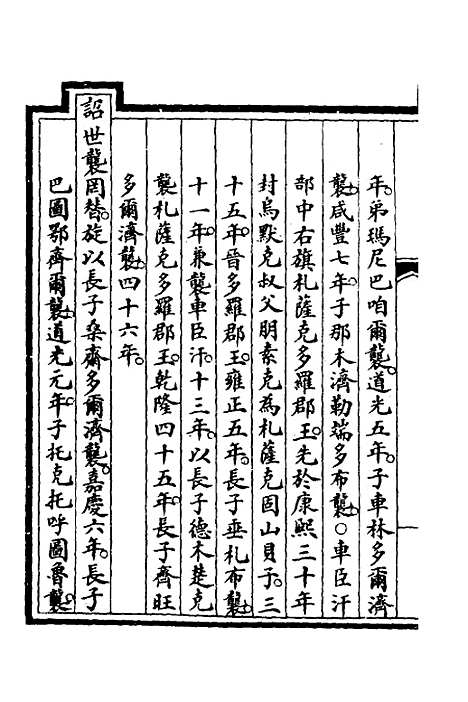 年。弟瑪尼巴咱爾襲。道光五年。子車林多爾濟
襲。咸豐七年。子那木濟勒端多布襲。○車臣汗
部中右旗札薩克多羅郡王。先於康熙三十年
封烏默克叔父朋素克為札薩克固山貝子。三
十五年。晉多羅郡王。雍正五年。長子垂札布襲。
十一年。兼襲車臣汗。十三年。以長子德木楚克
襲札薩克多羅郡王。乾隆四十五年。長子齊旺
多爾濟襲。四十六年。
詔世襲罔替。旋以長子桑齋多爾濟襲。嘉慶六年。長子
巴圖鄂齊爾襲。道光元年。子托克托呼圖魯襲。